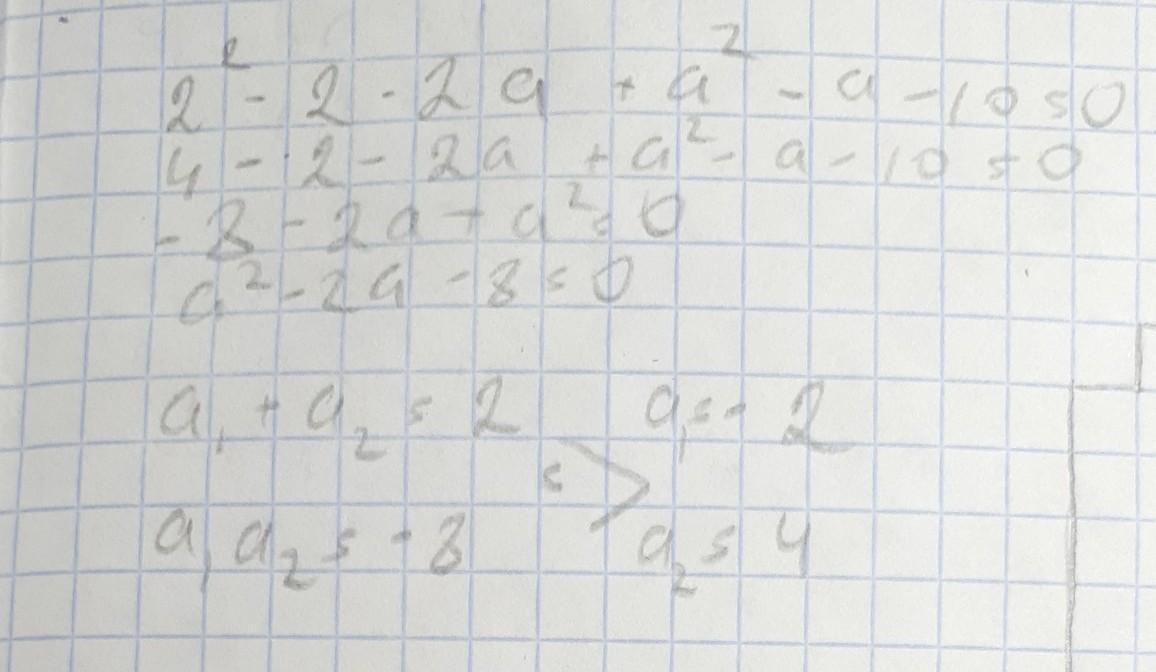 2² - 2 - 2a + a² - a - 10 = 0
4 - 2 - 2a + a² - a - 10 = 0
-8 - 2a + a² = 0
a² - 2a - 8 = 0
a₁ + a₂ = 2 a₁ = -2
=>
a₁ a₂ = -8 a₂ = 4